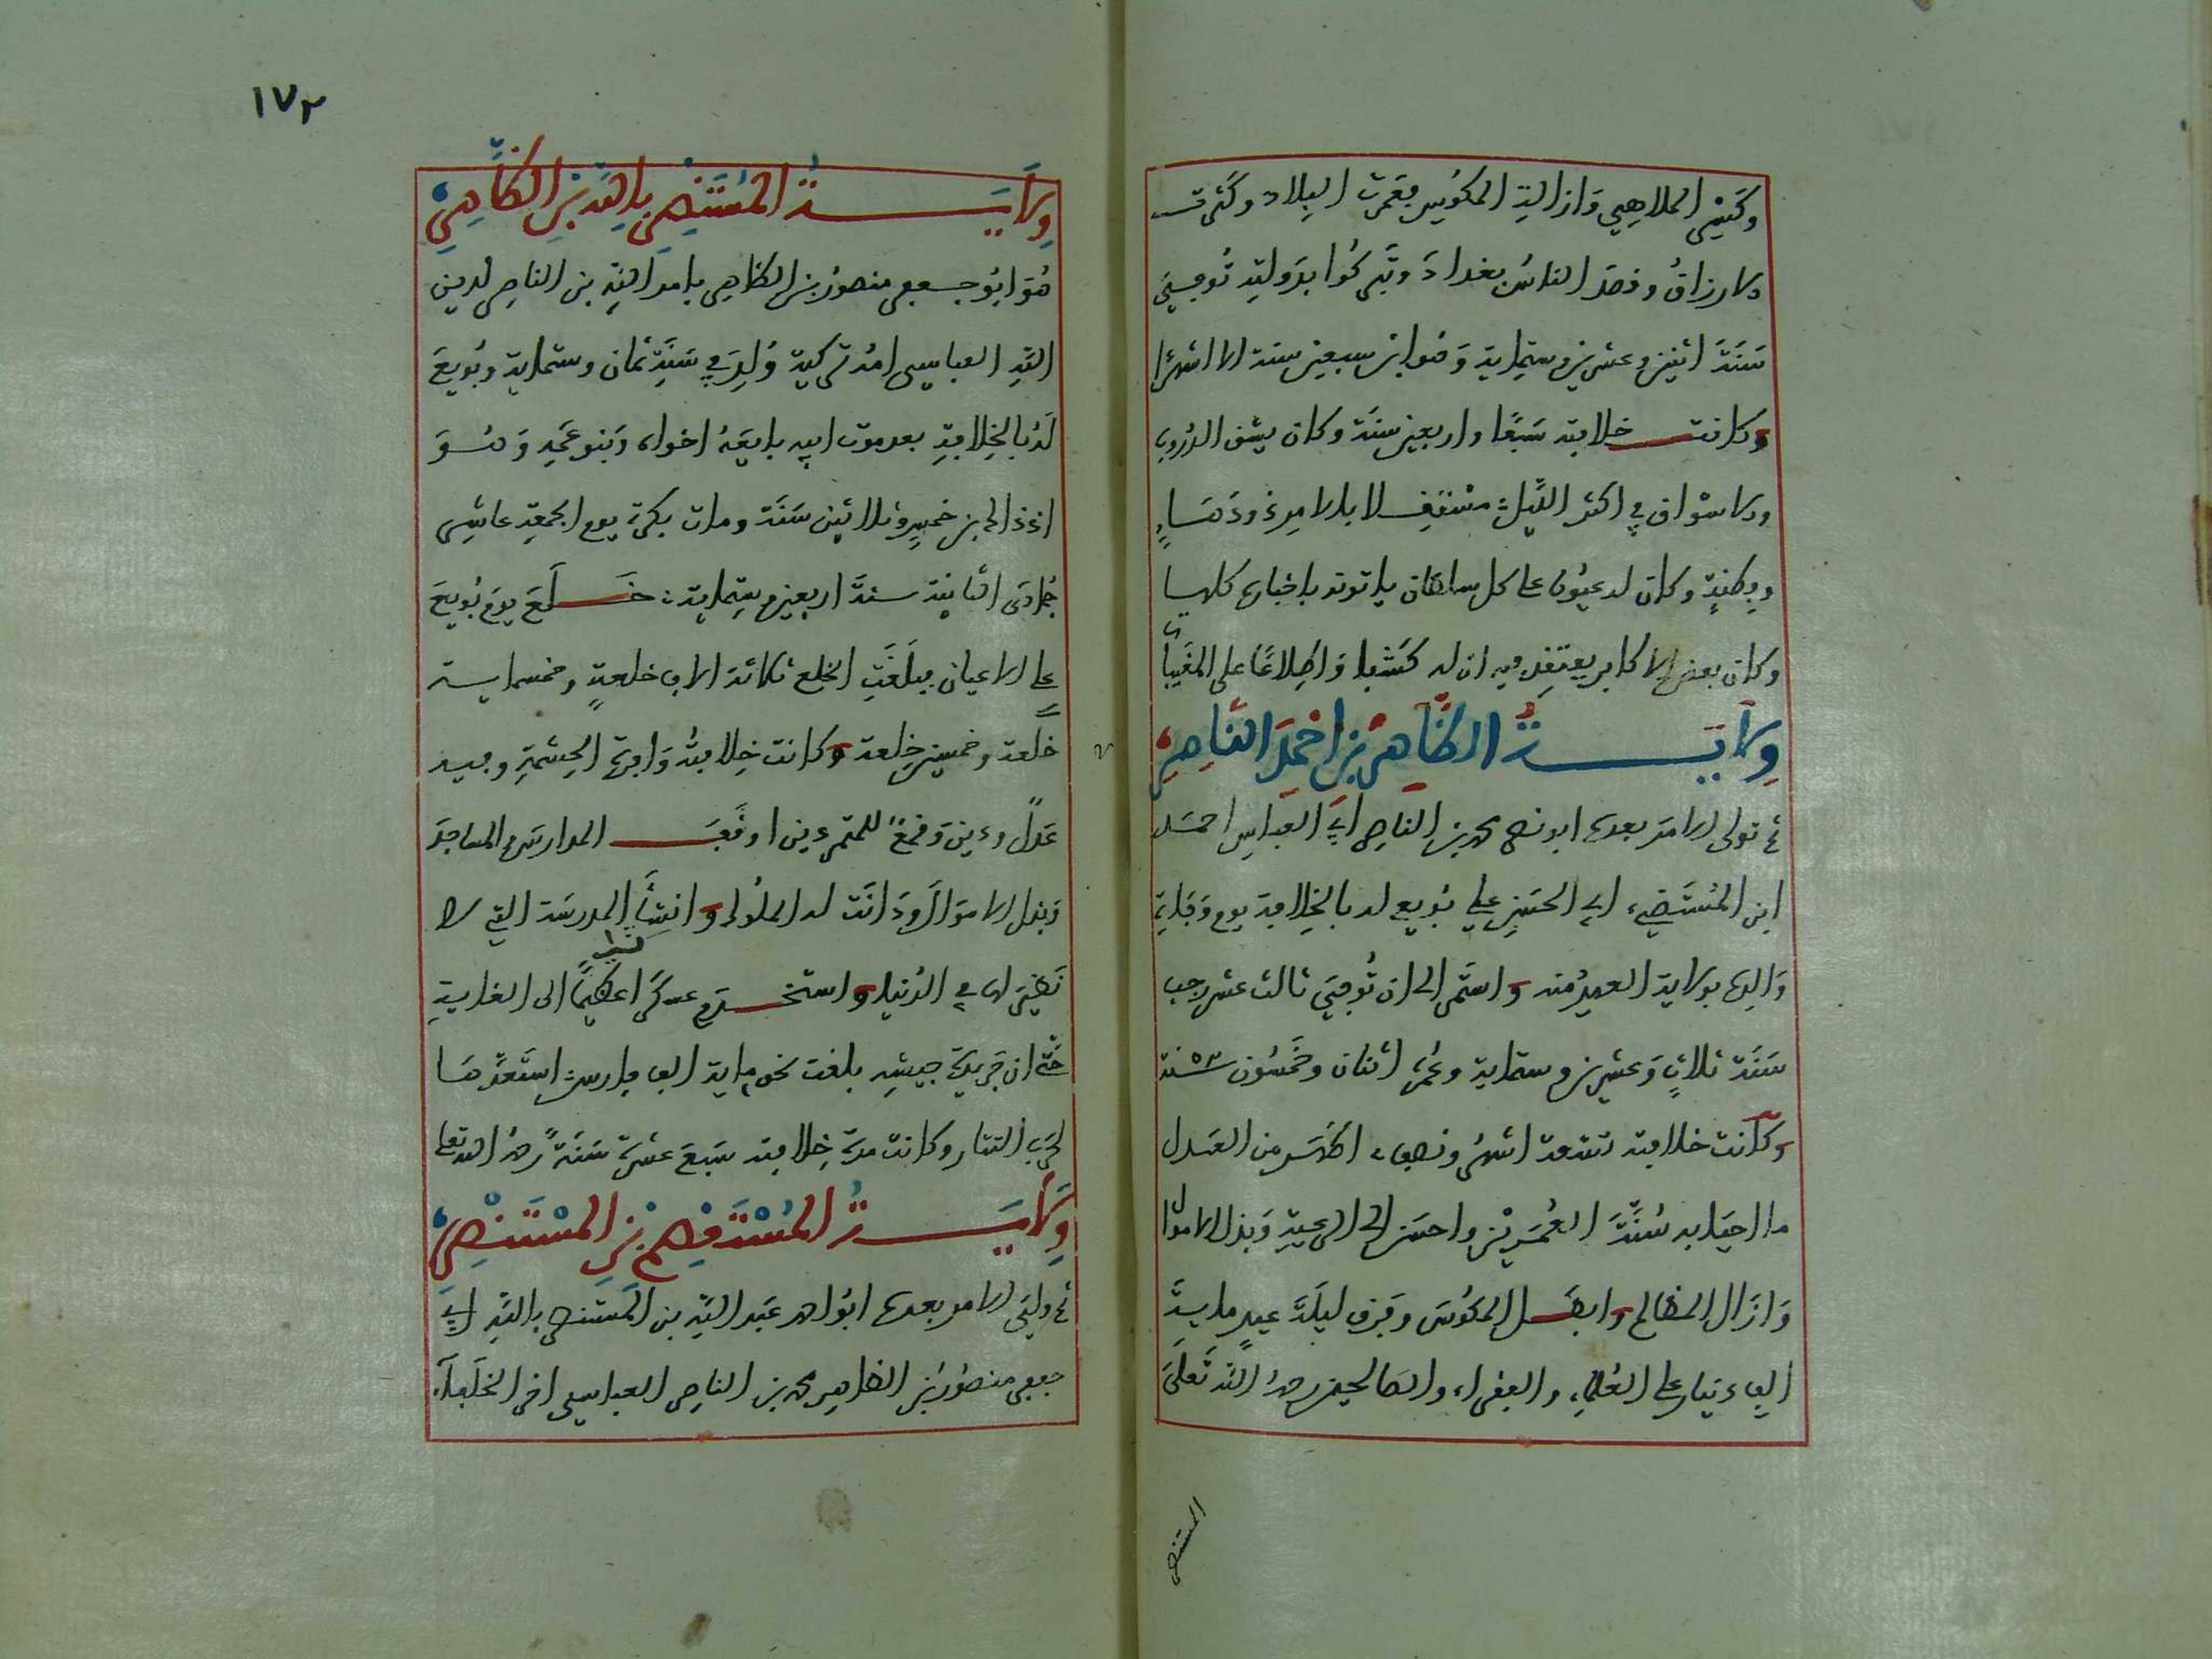 وكسر الملاهي وازالة المكوس فعمرت البلاد وكثرت
الارزاق وقصد الناس بغداد وتبركوا بدولته توفي
سنة اثنين وعشرين وستماية وهو ابن سبعين سنة الا اشهرا
وكانت خلافته سبعا واربعين سنة وكان يشق الدروب
والاسواق في اكثر الليل مستقلا بالامور ودهاء
وفطنة وكان له عيون على كل سلطان ياتونه باخباره كلها
وكان بعض الاكابر يعتقد فيه ان له كشفا واطلاعا على المغيبات
ولاية الظاهر بن احمد الناصر
ثم تولى الامر بعده ابو نصر محمد بن الناصر ابي العباس احمد
ابن المستضيء ابي الحسن علي بويع له بالخلافة يوم وفاة
والده بولاية العهد منه واستمر الى ان توفي ثالث عشر رجب
سنة ثلاث وعشرين وستماية وعمره اثنان وخمسون سنة
وكانت خلافته تسعة اشهر ونصف اظهر من العدل
ما احيا به سنة العمرين واحسن الى الرعية وبذل الاموال
وازال المظالم وابطل المكوس وفرق ليلة عيد ماية
الف دينار على العلماء والفقراء والصالحين رحمه الله تعالى
المستنصر
١٧٢
ولاية المستنصر بالله بن الظاهر
هو ابو جعفر منصور بن الظاهر بامر الله بن الناصر لدين
الله العباسي امه تركية ولد في سنة ثمان وستماية وبويع
له بالخلافة بعد موت ابيه بايعه اخواه وبنو عمه وهو
اذ ذاك ابن خمس وثلاثين سنة ومات بكرة يوم الجمعة عاشر
جمادى الثانية سنة اربعين وستماية خلع يوم بويع
على الاعيان فبلغت الخلع ثلاثة الاف خلعة وخمسماية
خلعة وخمسين خلعة وكانت خلافته وافرة الحشمة وفيه
عدل ودين وقمع للمتمردين اوقف المدارس والمساجد
وبذل الاموال ودانت له الملوك وانشا المدرسة التي لا
نظير لها في الدنيا واستخدم عسكرا عظيما الى الغاية
حتى ان جريدة جيشه بلغت نحو ماية الف فارس استعدها
لحرب التتار وكانت مدة خلافته سبع عشرة سنة رحمه الله تعالى
ولاية المستعصم بن المستنصر
ثم ولي الامر بعده ابو احمد عبد الله بن المستنصر بالله ابي
جعفر منصور بن الظاهر محمد بن الناصر العباسي اخر الخلفاء